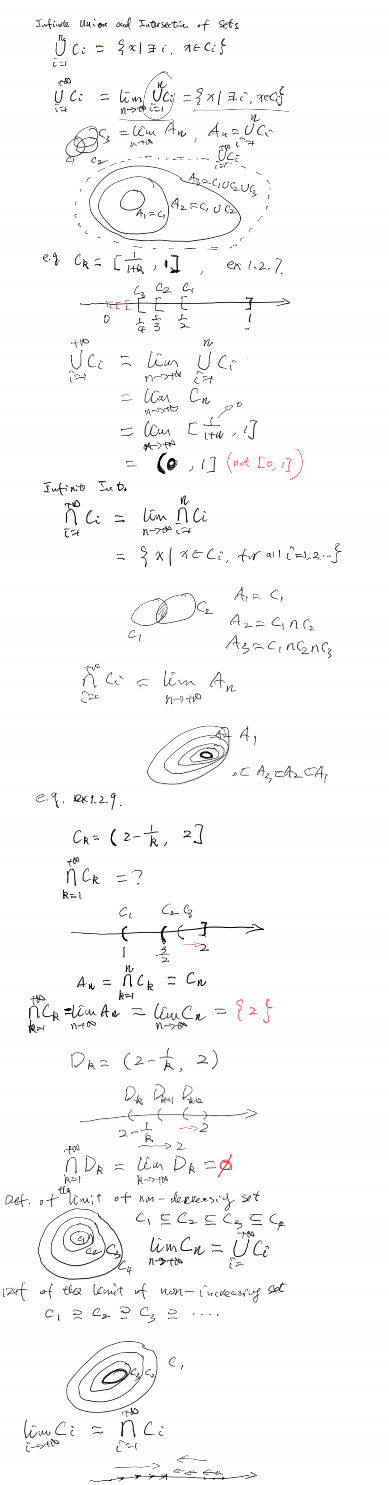 Infinite Union and Intersection of Sets
n ∪ i=1 Ci = {x | ∃ i, x∈Ci}
+∞ ∪ i=1 Ci = lim n→∞ n ∪ i=1 Ci = {x | ∃ i, x∈Ci}
= lim n→∞ An, An = n ∪ i=1 Ci
C3
C1 C2
+∞ ∪ i=1 Ci
A3=C1∪C2∪C3
A1=C1
A2=C1∪C2
e.g. Ck = [1/1+k, 1], ex 1.2.7.
C3 C2 C1
0 1/4 1/3 1/2 1
+∞ ∪ i=1 Ci = lim n→+∞ n ∪ i=1 Ci
= lim n→+∞ Cn
= lim n→+∞ [1/1+n, 1]
0
= (0, 1] (not [0,1])
Infinite Int.
+∞ ∩ i=1 Ci = lim n→∞ n ∩ i=1 Ci
= {x | x∈Ci, for all i=1,2...}
C1 C2
A1 = C1
A2 = C1∩C2
A3 = C1∩C2∩C3
+∞ ∩ i=1 Ci = lim n→+∞ An
A2 A1
..⊂A3⊂A2⊂A1
e.g. ex1.2.9.
Ck = (2-1/k, 2]
+∞ ∩ k=1 Ck = ?
C1 C2 C3
1 3/2 2
An = n ∩ k=1 Ck = Cn
+∞ ∩ k=1 Ck = lim n→∞ An = lim n→∞ Cn = {2}
Dk = (2-1/k, 2)
Dk Dk+1 Dk+2
2-1/k → 2
2
+∞ ∩ k=1 Dk = lim k→+∞ Dk = ∅
Def. of the limit of non-decreasing set
C1 ⊆ C2 ⊆ C3 ⊆ C4
C1 C2 C3 C4
lim n→+∞ Cn = +∞ ∪ i= Ci
Def of the limit of non-increasing set
C1 ⊇ C2 ⊇ C3 ⊇ ....
C3 C2 C1
lim i→+∞ Ci = +∞ ∩ i=1 Ci